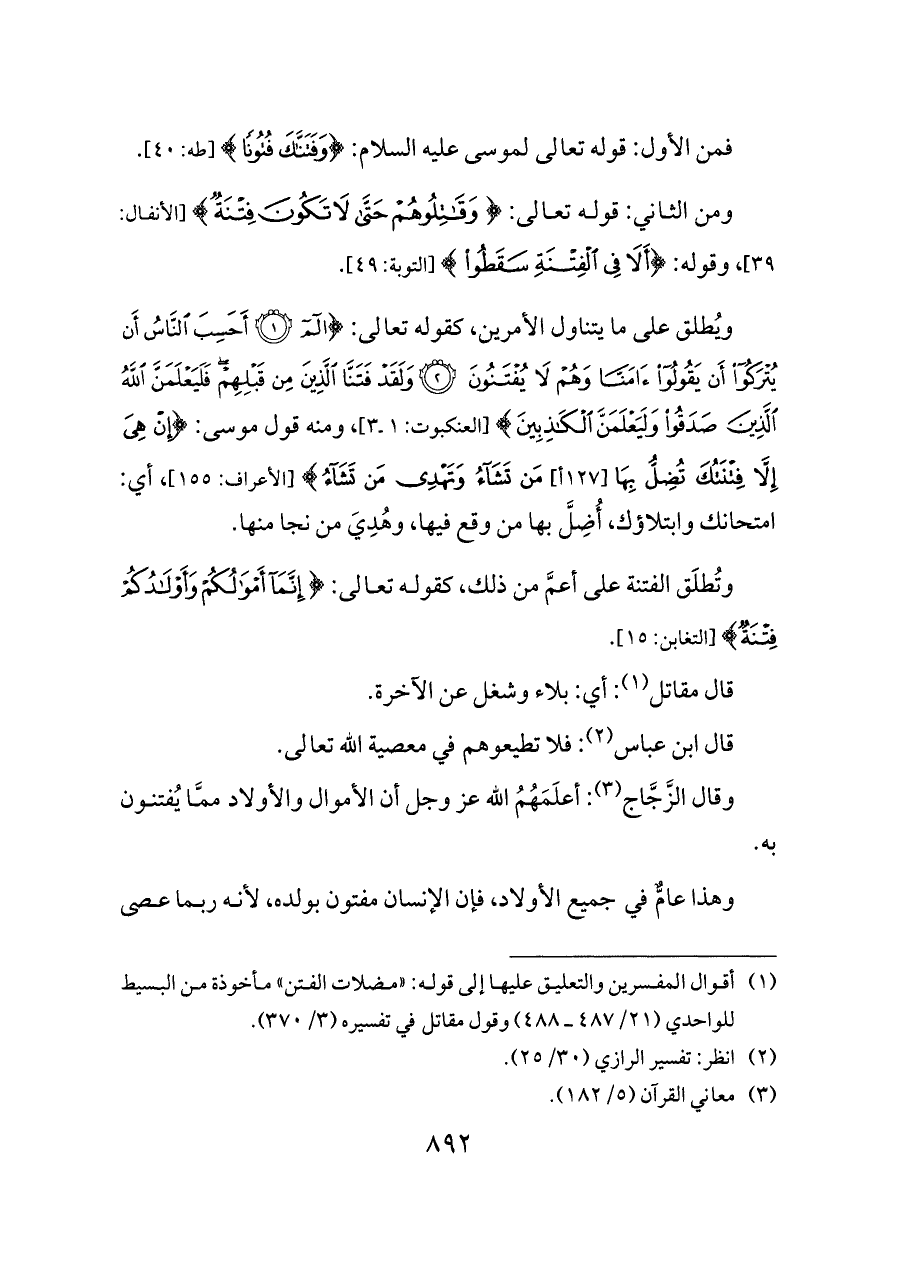 فمن الأول: قوله تعالى لموسى عليه السلام: ﴿وَفَتَنَّٰكَ فُتُونٗا﴾ [طه: ٤٠].
ومن الثاني: قوله تعالى: ﴿وَقَٰتِلُوهُمۡ حَتَّىٰ لَا تَكُونَ فِتۡنَةٞ﴾ [الأنفال:
٣٩]، وقوله: ﴿أَلَا فِي ٱلۡفِتۡنَةِ سَقَطُواْ﴾ [التوبة: ٤٩].
ويُطلق على ما يتناول الأمرين، كقوله تعالى: ﴿الٓمٓ ١ أَحَسِبَ ٱلنَّاسُ أَن
يُتۡرَكُوٓاْ أَن يَقُولُوٓاْ ءَامَنَّا وَهُمۡ لَا يُفۡتَنُونَ ٢ وَلَقَدۡ فَتَنَّا ٱلَّذِينَ مِن قَبۡلِهِمۡۖ فَلَيَعۡلَمَنَّ ٱللَّهُ
ٱلَّذِينَ صَدَقُواْ وَلَيَعۡلَمَنَّ ٱلۡكَٰذِبِينَ﴾ [العنكبوت: ١ـ٣]، ومنه قول موسى: ﴿إِنۡ هِيَ
إِلَّا فِتۡنَتُكَ تُضِلُّ بِهَا [١٢٧أ] مَن تَشَآءُ وَتَهۡدِي مَن تَشَآءُ﴾ [الأعراف: ١٥٥]، أي:
امتحانك وابتلاؤك، أُضِلَّ بها من وقع فيها، وهُدِيَ من نجا منها.
وتُطلَق الفتنة على أعمَّ من ذلك، كقوله تعالى: ﴿إِنَّمَآ أَمۡوَٰلُكُمۡ وَأَوۡلَٰدُكُمۡ
فِتۡنَةٞ﴾ [التغابن: ١٥].
قال مقاتل(١): أي: بلاء وشغل عن الآخرة.
قال ابن عباس(٢): فلا تطيعوهم في معصية الله تعالى.
وقال الزَّجَّاج(٣): أعلَمَهُمُ الله عز وجل أن الأموال والأولاد ممَّا يُفتنون
به.
وهذا عامٌّ في جميع الأولاد، فإن الإنسان مفتون بولده، لأنه ربما عصى
(١) أقوال المفسرين والتعليق عليها إلى قوله: «مضلات الفتن» مأخوذة من البسيط
للواحدي (٢١/ ٤٨٧ ــ ٤٨٨) وقول مقاتل في تفسيره (٣/ ٣٧٠).
(٢) انظر: تفسير الرازي (٣٠/ ٢٥).
(٣) معاني القرآن (٥/ ١٨٢).
٨٩٢